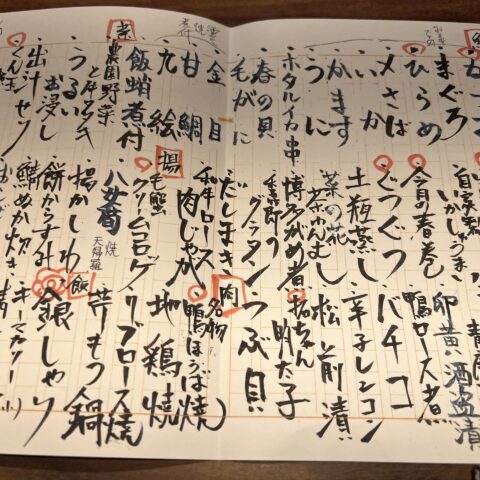 まぐろ
ひらめ
〆さば
いか
かます
うに
ホタルイカ串
春の貝
毛がに
金目
甘鯛
九絵
煮付
焼
飯蛸煮付
菜
農園野菜
うるい
お浸し
出汁
いかしゅうまい
今月の春巻
ぐつぐつ
土瓶蒸し
菜の花
茶わんむし
博多がめ煮
季節の
グラタン
だしまき
和牛ロース
肉じゃが
揚
毛蟹
クリームコロッケ
八女筍
焼
天婦羅
揚かしわ
餅からすみ
鯖ぬか炊き
卵黄酒盗漬
鴨ロース煮
バチコ
辛子レンコン
松前漬
拓ちゃん
明太子
つぶ貝
肉
名物
鴨ほうば焼
地鶏焼
リブロース焼
牛もつ鍋
飯
銀しゃり
キーマカリー